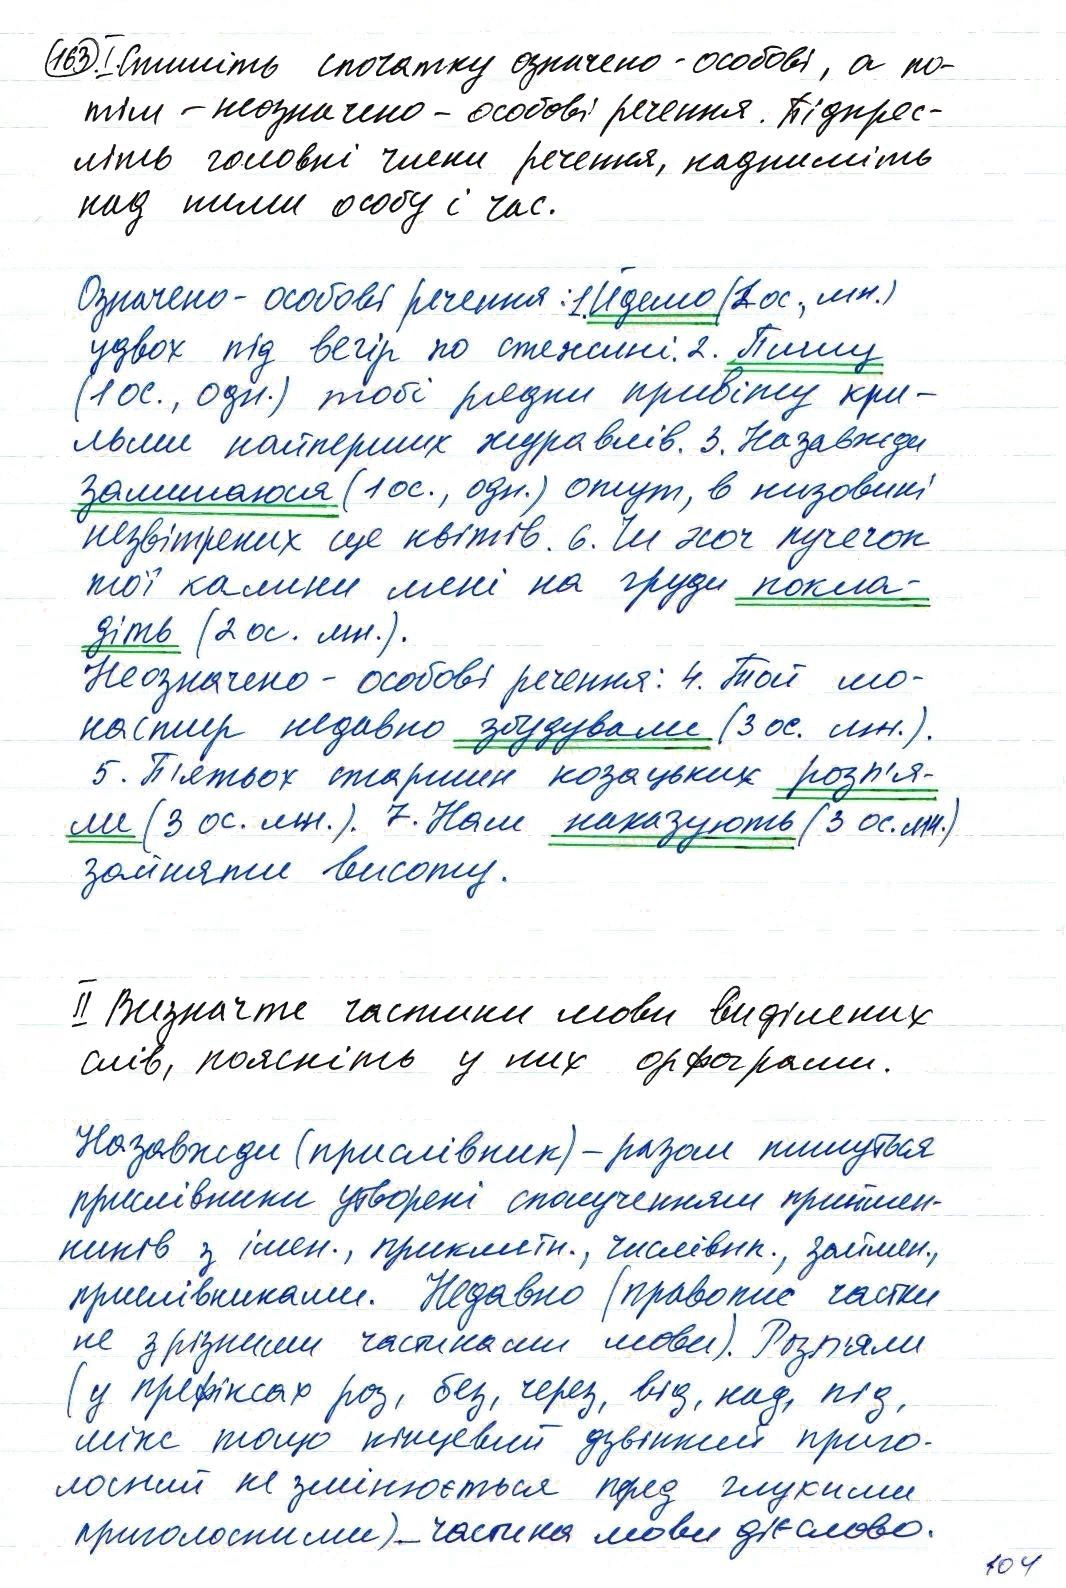 163. I. Спишіть спочатку означено-особові, а по-
тім - неозначено-особові речення. Підкрес-
літь головні члени речення, надпишіть
над ними особу і час.
Означено-особові речення: 1. Йдемо (1 ос., мн.)
удвох під вечір по стежині. 2. Пишу
(1 ос., одн.) тобі рядки привіту кри-
льми найперших журавлів. 3. Назавжди
залишаюся (1 ос., одн.) отут, в низовині
незвітрених ще квітів. 6. Чи хоч пучечок
тої калини мені на груди покла-
діть (2 ос. мн.).
Неозначено-особові речення: 4. Той мо-
настир недавно збудували (3 ос. мн.).
5. П'ятьох старшин козацьких розп'я-
ли (3 ос. мн.). 7. Нам наказують (3 ос. мн.)
зайняти висоту.
II Визначте частини мови виділених
слів, поясніть у них орфограми.
Назавжди (прислівник) - разом пишуться
прислівники утворені сполученням приймен-
ників з імен., прикметн., числівник., займен.,
прислівниками. Недавно (правопис частки
не з різними частинами мови). Розп'яли
(у префіксах роз, без, через, від, над, під,
між тощо кінцевий дзвінкий приго-
лосний не змінюється перед глухими
приголосними) - частина мови дієслово.
104